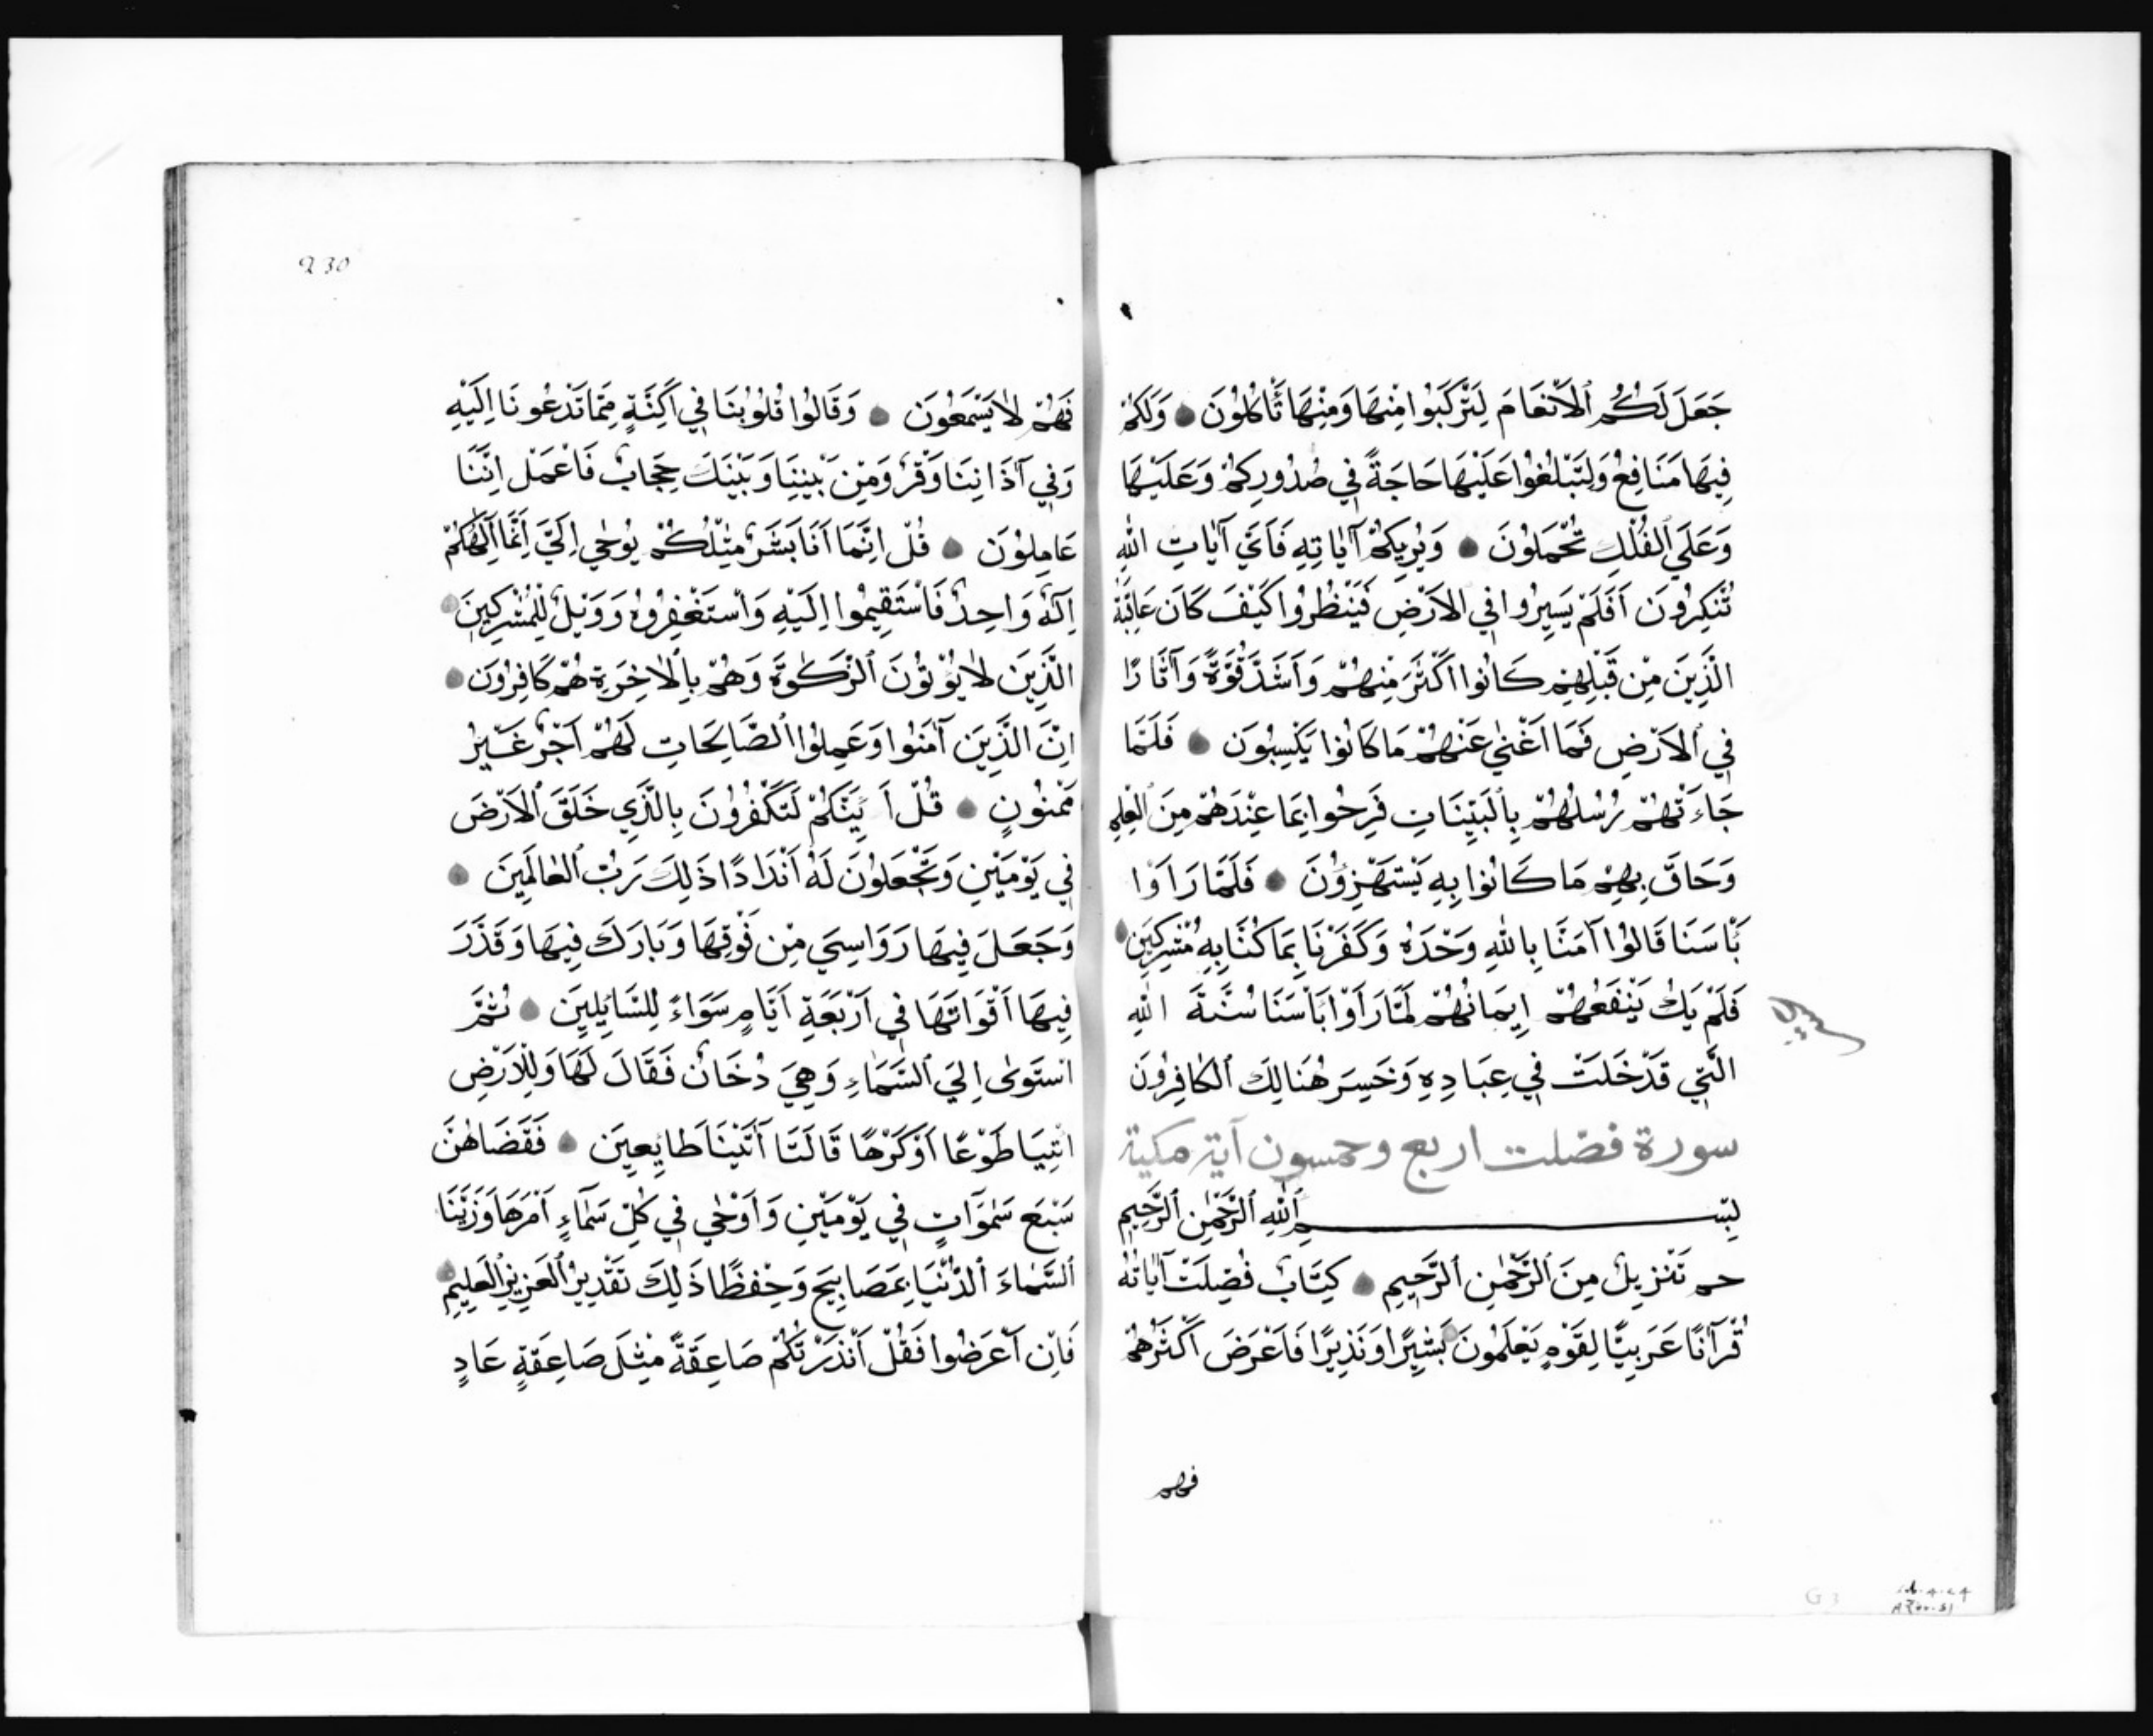 جَعَلَ لَكُمُ ٱلْاَنْعَامَ لِتَرْكَبُوا مِنْهَا وَمِنْهَا تَأْكُلُونَ وَلَكُمْ
فِيهَا مَنَافِعُ وَلِتَبْلُغُوا عَلَيْهَا حَاجَةً فِي صُدُورِكُمْ وَعَلَيْهَا
وَعَلَي ٱلْفُلْكِ تُحْمَلُونَ وَيُرِيكُمْ آيَاتِهِ فَاَيَّ آيَاتِ اللهِ
تُنْكِرُونَ اَفَلَمْ يَسِيرُوا فِي الاَرْضِ فَيَنْظُرُوا كَيْفَ كَانَ عَاقِبَةُ
الَّذِينَ مِنْ قَبْلِهِمْ كَانُوا اَكْثَرَ مِنْهُمْ وَاَشَدَّ قُوَّةً وَآثَارًا
فِي ٱلاَرْضِ فَمَا اَغْنٰي عَنْهُمْ مَا كَانُوا يَكْسِبُونَ فَلَمَّا
جَاءَتْهُمْ رُسُلُهُمْ بِٱلْبَيِّنَاتِ فَرِحُوا بِمَا عِنْدَهُمْ مِنَ ٱلْعِلْمِ
وَحَاقَ بِهِمْ مَا كَانُوا بِهِ يَسْتَهْزِؤُنَ فَلَمَّا رَاَوْا
بَأْسَنَا قَالُوا آمَنَّا بِاللهِ وَحْدَهُ وَكَفَرْنَا بِمَا كُنَّا بِهِ مُشْرِكِينَ
فَلَمْ يَكُ يَنْفَعُهُمْ اِيمَانُهُمْ لَمَّا رَاَوْا بَأْسَنَا سُنَّةَ اللهِ
الَّتِي قَدْ خَلَتْ فِي عِبَادِهِ وَخَسِرَ هُنَالِكَ ٱلْكَافِرُونَ
سورة فصّلت اربع وخمسون آية مكية
بِسْمِ ٱللهِ ٱلرَّحْمٰنِ ٱلرَّحِيمِ
حم تَنْزِيلٌ مِنَ ٱلرَّحْمٰنِ ٱلرَّحِيمِ كِتَابٌ فُصِّلَتْ آيَاتُهُ
قُرْآنًا عَرَبِيًّا لِقَوْمٍ يَعْلَمُونَ بَشِيرًا وَنَذِيرًا فَاَعْرَضَ اَكْثَرُهُمْ
فهم
230
فَهُمْ لَا يَسْمَعُونَ وَقَالُوا قُلُوبُنَا فِي اَكِنَّةٍ مِمَّا تَدْعُونَا اِلَيْهِ
وَفِي آذَانِنَا وَقْرٌ وَمِنْ بَيْنِنَا وَبَيْنِكَ حِجَابٌ فَاعْمَلْ اِنَّنَا
عَامِلُونَ قُلْ اِنَّمَا اَنَا بَشَرٌ مِثْلُكُمْ يُوحٰي اِلَيَّ اَنَّمَا اِلٰهُكُمْ
اِلٰهٌ وَاحِدٌ فَاسْتَقِيمُوا اِلَيْهِ وَاسْتَغْفِرُوهُ وَوَيْلٌ لِلْمُشْرِكِينَ
الَّذِينَ لَا يُؤْتُونَ ٱلزَّكٰوةَ وَهُمْ بِالْاٰخِرَةِ هُمْ كَافِرُونَ
اِنَّ الَّذِينَ آمَنُوا وَعَمِلُوا ٱلصَّالِحَاتِ لَهُمْ اَجْرٌ غَيْرُ
مَمْنُونٍ قُلْ اَئِنَّكُمْ لَتَكْفُرُونَ بِالَّذِي خَلَقَ ٱلاَرْضَ
فِي يَوْمَيْنِ وَتَجْعَلُونَ لَهُ اَنْدَادًا ذَلِكَ رَبُّ ٱلْعَالَمِينَ
وَجَعَلَ فِيهَا رَوَاسِيَ مِنْ فَوْقِهَا وَبَارَكَ فِيهَا وَقَدَّرَ
فِيهَا اَقْوَاتَهَا فِي اَرْبَعَةِ اَيَّامٍ سَوَاءً لِلسَّايِلِينَ ثُمَّ
اسْتَوٰى اِلَيَ ٱلسَّمَاءِ وَهِيَ دُخَانٌ فَقَالَ لَهَا وَلِلْاَرْضِ
ائْتِيَا طَوْعًا اَوْ كَرْهًا قَالَتَا اَتَيْنَا طَايِعِينَ فَقَضَاهُنَّ
سَبْعَ سَمٰوَاتٍ فِي يَوْمَيْنِ وَاَوْحٰي فِي كُلِّ سَمَاءٍ اَمْرَهَا وَزَيَّنَّا
ٱلسَّمَاءَ ٱلدُّنْيَا بِمَصَابِيحَ وَحِفْظًا ذَلِكَ تَقْدِيرُ ٱلْعَزِيزِ ٱلْعَلِيمِ
فَاِنْ اَعْرَضُوا فَقُلْ اَنْذَرْتُكُمْ صَاعِقَةً مِثْلَ صَاعِقَةِ عَادٍ